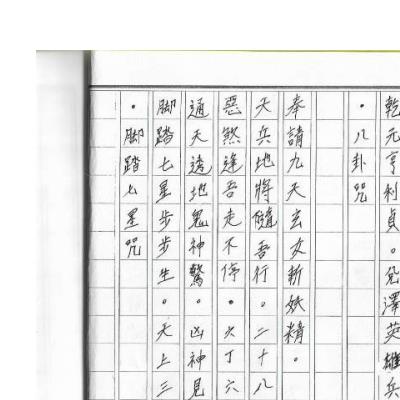 乾元亨利貞。兌澤英雄兵
・八卦咒
奉請九天玄女斬妖精。
天兵地將隨吾行。二十八
惡煞逢吾走不停。火丁六
通天透地鬼神驚。凶神見
脚踏七星步步生。天上三
・脚踏七星咒